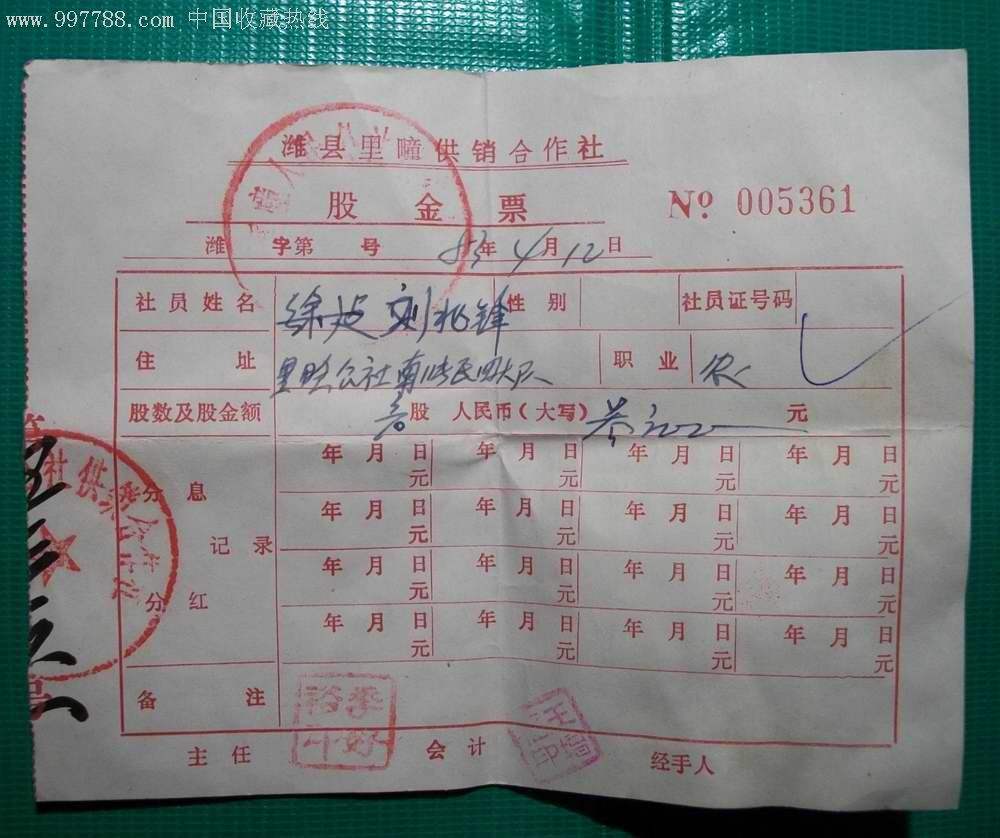 www.997788.com 中国收藏热线
潍县里疃供销合作社
股金票
№ 005361
潍 字第 号 83年4月12日
社员姓名 刘兆锋 性别 社员证号码
住址 里疃公社南 民四大队 职业 农
股数及股金额 股 人民币(大写) 叁元 元
年 月 日 年 月 日 年 月 日 年 月 日
元 元 元 元
分息
年 月 日 年 月 日 年 月 日 年 月 日
元 元 元 元
记录
年 月 日 年 月 日 年 月 日 年 月 日
元 元 元 元
分红
年 月 日 年 月 日 年 月 日 年 月 日
元 元 元 元
备注
主任 会计 经手人